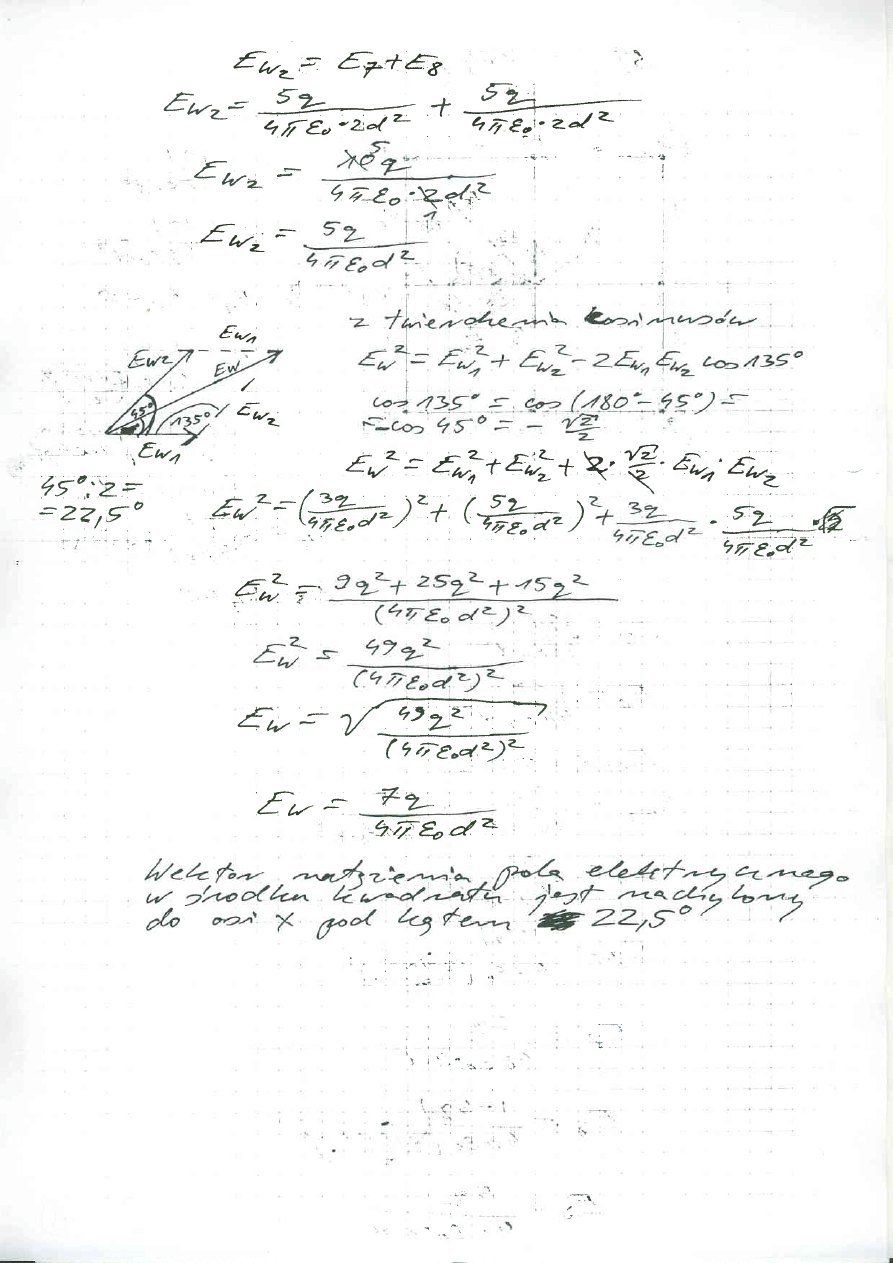 E_{W2} = E_7 + E_8
E_{W2} = \frac{5q}{4πε_0·2d^2} + \frac{5q}{4πε_0·2d^2}
E_{W2} = \frac{10q}{4πε_0·2d^2} 5 1
E_{W2} = \frac{5q}{4πε_0d^2}
z twierdzenia kosinusów
E_{W1}
E_{W2} E_W
E_W^2 = E_{W1}^2 + E_{W2}^2 - 2E_{W1}E_{W2} cos 135°
45° 135° E_{W2}
E_{W1}
cos 135° = cos (180° - 45°) =
= -cos 45° = - \frac{√2}{2}
E_W^2 = E_{W1}^2 + E_{W2}^2 + 2·\frac{√2}{2}·E_{W1}·E_{W2}
45°:2 =
= 22,5°
E_W^2 = (\frac{3q}{4πε_0d^2})^2 + (\frac{5q}{4πε_0d^2})^2 + \frac{3q}{4πε_0d^2}·\frac{5q}{4πε_0d^2}
E_W^2 = \frac{9q^2 + 25q^2 + 15q^2}{(4πε_0d^2)^2}
E_W^2 = \frac{49q^2}{(4πε_0d^2)^2}
E_W = √\frac{49q^2}{(4πε_0d^2)^2}
E_W = \frac{7q}{4πε_0d^2}
Wektor natężenia pola elektrycznego
w środku kwadratu jest nachylony
do osi x pod kątem 22,5°